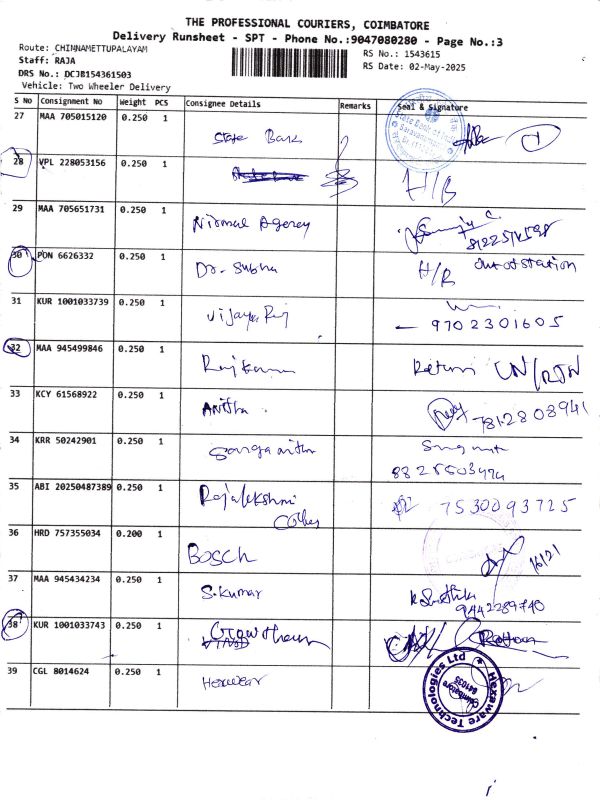 THE PROFESSIONAL COURIERS, COIMBATORE
Delivery Runsheet - SPT - Phone No.:9047080280 - Page No.:3
Route: CHINNAMETTUPALAYAM
RS No.: 1543615
Staff: RAJA
RS Date: 02-May-2025
DRS No.: DCJB154361503
Vehicle: Two Wheeler Delivery
S No Consignment No Weight PCS Consignee Details Remarks Seal & Signature
27 MAA 705015120 0.250 1 State Bank
28 VPL 228053156 0.250 1 H/B
29 MAA 705651731 0.250 1 Nirmal Agency
30 PON 6626332 0.250 1 Dr. Subha H/R out of station
31 KUR 1001033739 0.250 1 Vijaya Raj
9702301605
32 MAA 945499846 0.250 1 Rajkumar Return UN/RTN
33 KCY 61568922 0.250 1 Anitha 7812808941
34 KRR 50242901 0.250 1 Sangamithra
35 ABI 20250487389 0.250 1 Rajalekshmi 7530093725
36 HRD 757355034 0.200 1 BOSCH
37 MAA 945434234 0.250 1 S. Kumar
9442289740
38 KUR 1001033743 0.250 1 Gowtham
39 CGL 8014624 0.250 1
Hexaware Technologies Ltd
Coimbatore
641035